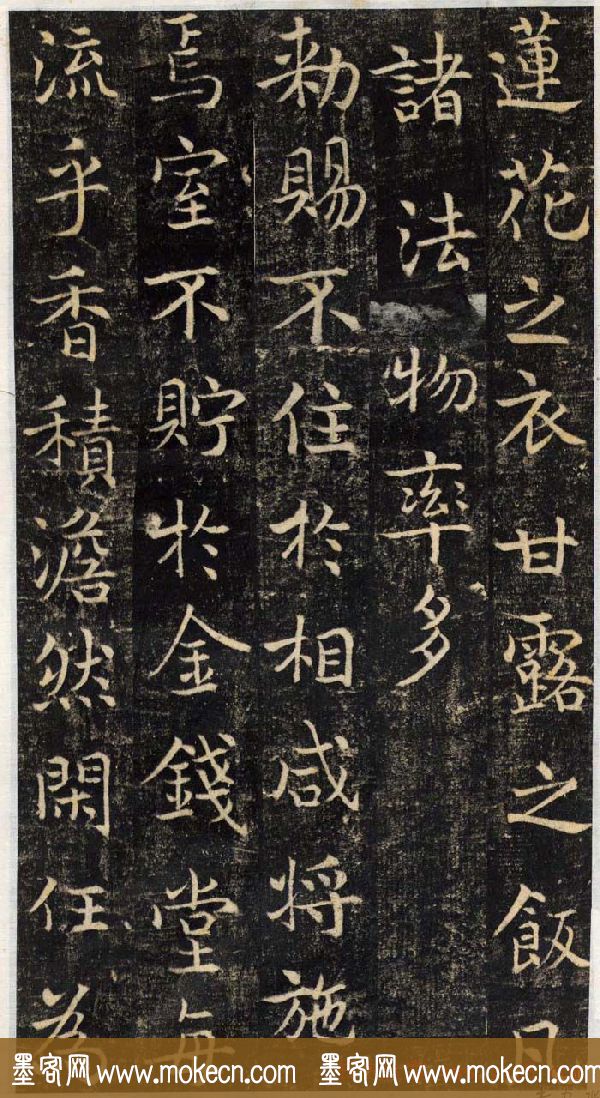 蓮花之衣甘露之飯凡
諸法物率多
勑賜不住於相咸将施
焉室不貯於金錢堂每
流乎香積澹然閑任為
墨客网 www.mokecn.com 墨客网 www.mokecn.com